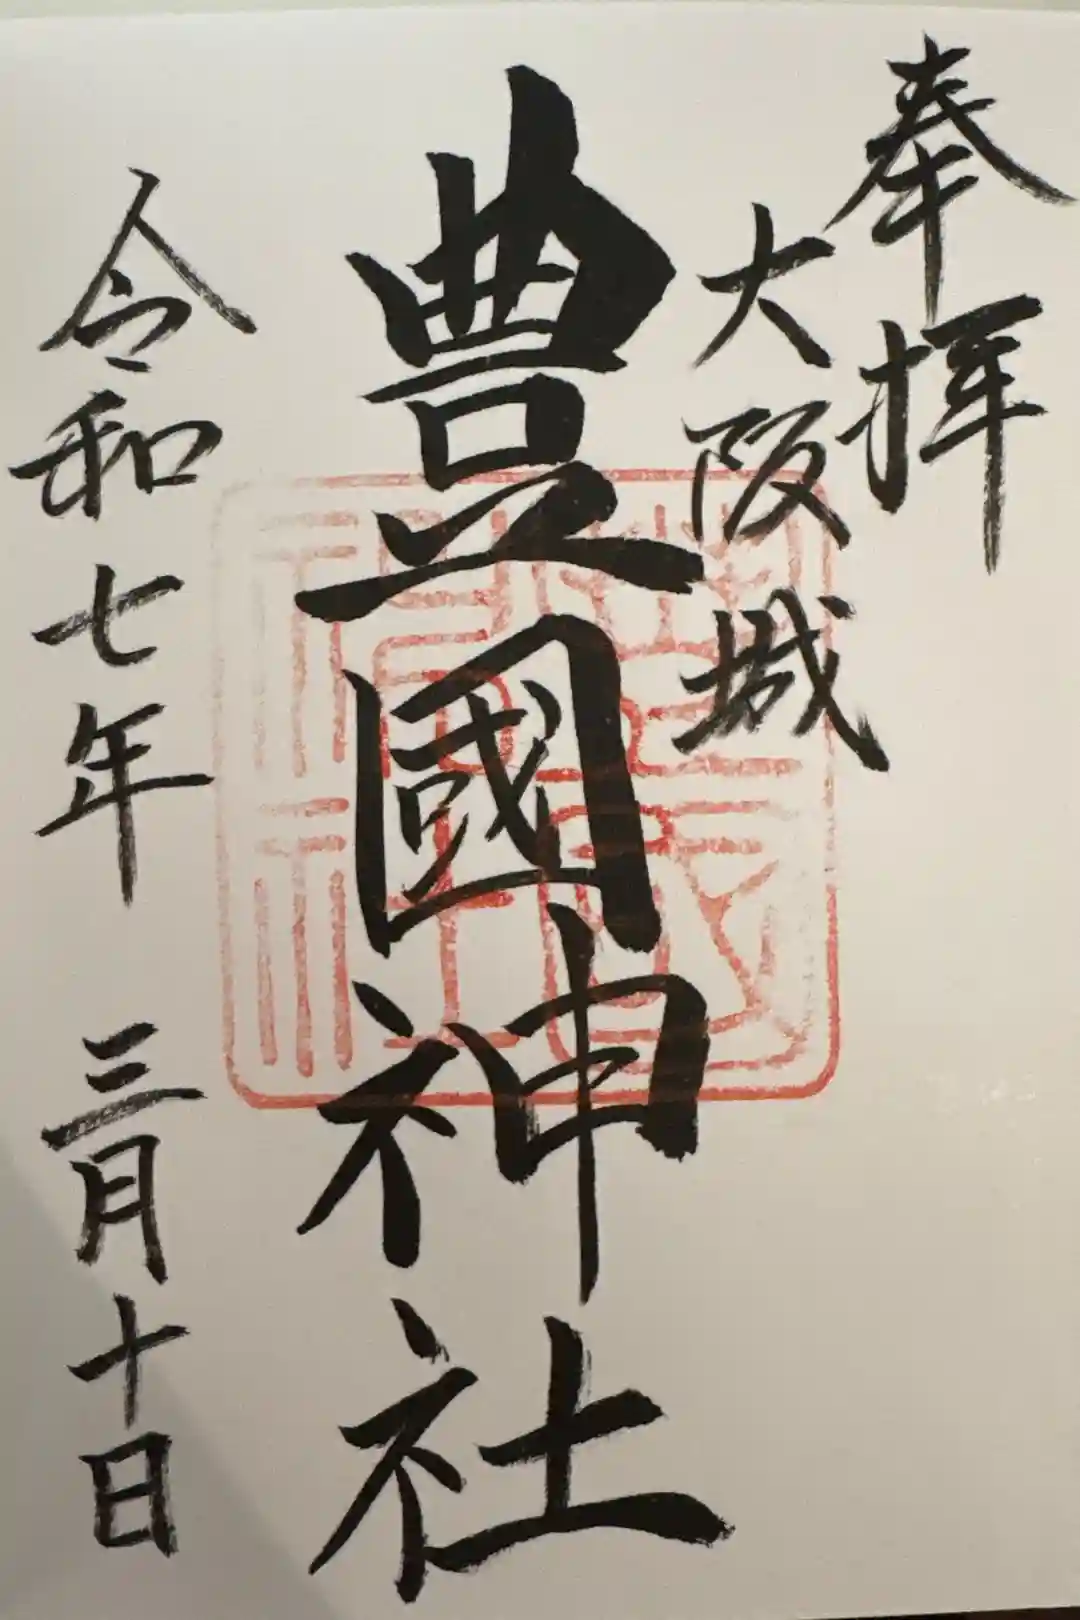 奉拝
大阪城
豊國神社
令和七年 三月十日